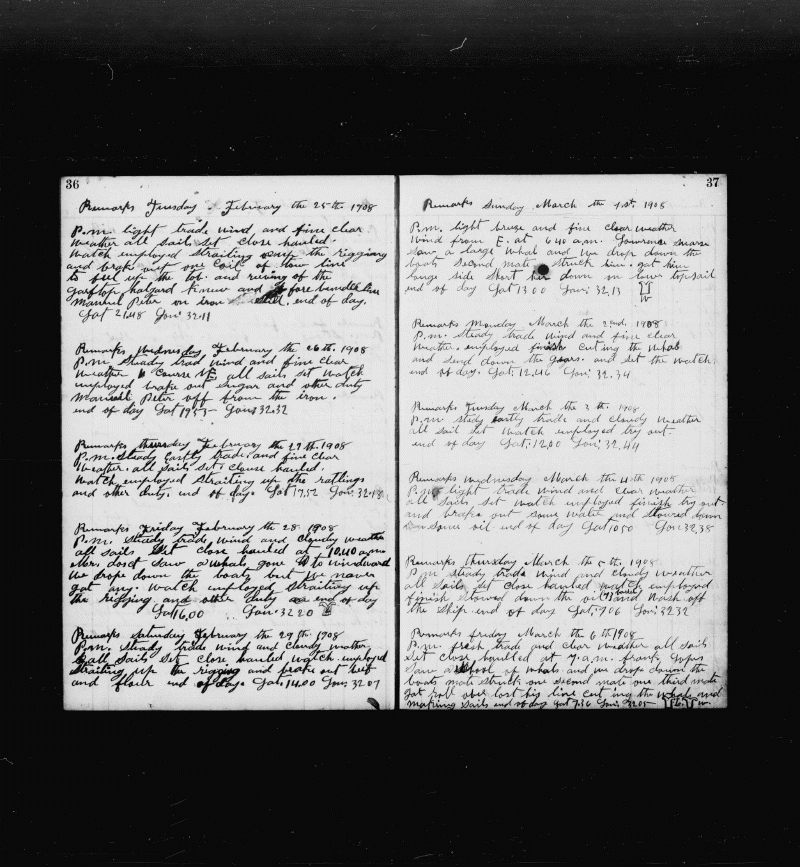 36
Remarks Tuesday. February the 25th 1908
P.m. light trade wind and fine clear
weather all sails set close hauled.
Watch employed straiting up the rigging
and brok out one coil of tow line
to fix up the and ruving of the
gafftop halyard and fore
Manuel Peter on iron still. end of day.
Lat 21,48 Lon: 32.11
Remarks Wednesday February the 26th 1908
P.m. Steady trad wind and fine clear
Weather Course all sails set watch
employed brake out sugar and other duty
Manuel Peter off from the iron.
end of day Lat 19.53 - Lon: 32.32
Remarks thursday February the 27th 1908
P.m. Steady Eastly trade. and fine clear
Weather. all sails set. close hauled.
Watch employed straiting up the ratlings
and other duty. end of day. Lat 17.52 Lon: 32.
Remarks Friday February the 28 1908
P.m. Steady trade wind and cloudy weathe
all sails Set close hauled at 10.40 a.m.
Mr. saw a whale gone to windward
We drope down the boats but We never
got any. Watch employed straiting up
the rigging and other duty end of day
Lat 16.00 Lon: 32 20
Remarks Saturday February the 29th 1908
P.m. Steady trade wind and cloudy wather
all sails Set close hauled watch employed
straiting up the rigging and brake out beef
and flour end of day. Lat: 14.00 Lon: 32 07
37
Remarks Sunday March the 1st. 1908
P.m. light breeze and fine clear weather
Wind from E. at 6 40 a.m. Lowrence
saw a large whal and we drop down the
boats Second mate struck him. got him
longe side Short down in lower topsail
end of day Lat 13.00 Lon: 32.13
W
Remarks Monday March the 2nd. 1908
P.m. Steady trade wind and fine clear
Weather. employed finish cuting the whal
and send down the gears. and set the watch.
end of day. Lat: 12,46 Lon: 32.34
Remarks Tuesday March the 3th. 1908
P.m. Stedy Eastly trade and cloudy weather
all sail set watch employed try out.
end of day Lat: 12,00 Lon: 32,44
Remarks Wednesday March the 4th 1908
P.m. light trade wind and clear weather
all sails set watch employed finish try out.
and broke out some water and stowed down
some oil. end of day Lat 10 50 Lon 32,38
Remarks thursday March the 5th. 1908
P.m. Steady trade wind and cloudy weather
all sails set close hauled watch employed
finish stowed down the oil and wash off
the ship. end of day Lat: 9 06 Lon: 32 32
Remarks friday March the 6th 1908
P.m. fresh trade and clear weather all sails
set close hauled at 7. a.m. frank
saw a of whals and we drope down the
boats mate struck one second mate one third mate
got roll over lost his line cut ing the whals and
making sails end of day Lat 7:36 Lon: 32 05 W.